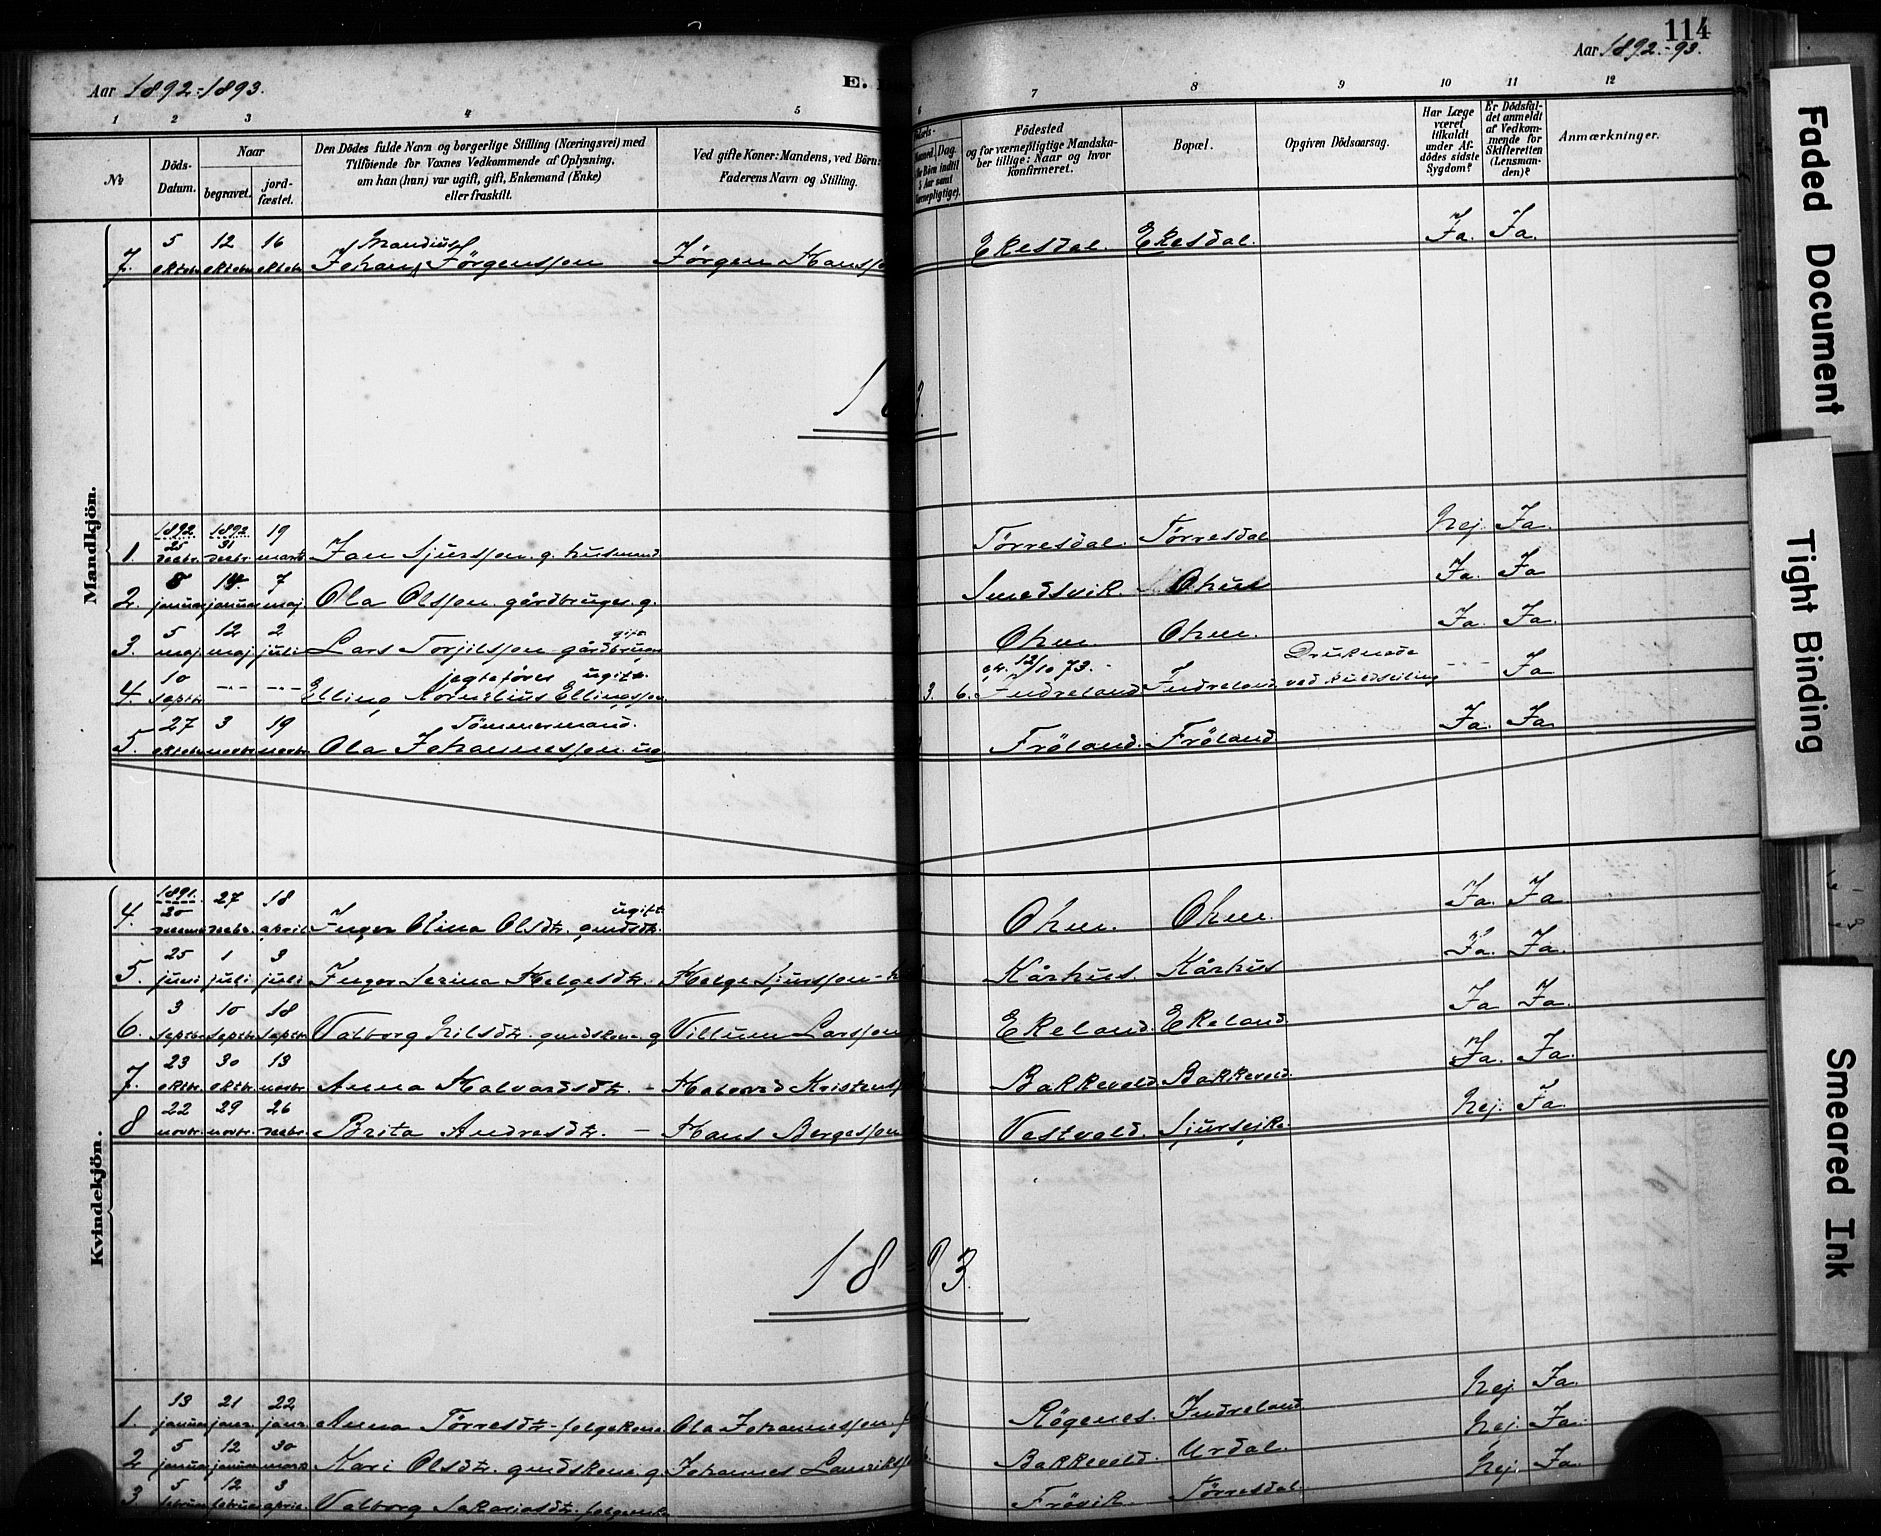 114
Aar 1892-1893.
E.
Aar 1892-93.
1 2 3 4 5 6 7 8 9 10 11 12
№
Döds-Datum.
Naar
begravet.
jord-fæstet.
Den Dödes fulde Navn og borgerlige Stilling (Næringsvei) med
Tilföiende for Voxnes Vedkommende af Oplysning,
om han (hun) var ugift, gift, Enkemand (Enke)
eller fraskilt.
Ved gifte Koner: Mandens, ved Börn:
Faderens Navn og Stilling.
Födested
og for værnepligtige Mandska-
ber tillige: Naar og hvor
konfirmeret.
Bopæl.
Opgiven Dödsaarsag.
Har Læge
været
tilkaldt
under Af-
dödes sidste
Sygdom?
Er Dödsfal-
det anmeldt
af Vedkom-
mende for
Skifteretten
(Lensman-
den)?
Anmærkninger.
Mandkjön.
7. 5 oktobr 12 oktobr 16 oktobr Johan Mandius Jørgenssen Jørgen Hanss Ekesdal. Ekesdal. Ja. Ja.
1. 1892 25 decbr. 1892 31 decbr 19 marts Jan Sjurssen g. husmand Tørresdal. Tørresdal Nej. Ja.
2. 8 januar 14 januar 7 maj Ola Olssen gårdbruger g. Smedsvik. Ohus Ja. Ja
3. 5 maj 12 maj 2 juli Lars Torjilssen gift gårdbruger Ohus. Ohus. Ja. Ja.
4. 10 septbr. Elling Kornelius Ellingssen jegtefører ugift. 3. 6. 12/10 73. Indreland Indreland Druknede ved Ja
5. 27 oktobr 3 novbr 19 novbr. Ola Johannessen ug Tömmermand. Frøland. Frøland Ja. Ja.
Kvindekjön.
4. 1891. 20 27 decbr. 18 april Inger Olina Olsdtr. ugift gmdsdtr. Ohus. Ohus. Ja. Ja
5. 25 juni 1 juli 3 juli Inger Serina Helgesdtr. Helge Sjurssen Kårhus. Kårhus Ja. Ja.
6. 3 septbr 10 septbr 18 septbr Valborg Nilsdtr. gmdskone. g Villum Larssen Ekeland. Ekeland Ja Ja.
7. 23 oktbr. 30 oktbr. 13 novbr Anna Halvardsdtr. Halvard Kristenss Bakkevold Bakkevold. Ja. Ja.
8 22 novbr. 29 novbr. 26 decbr. Brita Andresdtr. Hans Børgessen Vestvold. Sjurseike. Nej. Ja.
1893.
1. 13 januar 21 janr. 22 janr. Anna Tørresdtr. folgekone Ola Johannessen. Røgenes. Indreland Nej. Ja.
2 5 januar 12 januar 30 marts Kari Olsdtr. gmdskone g. Johannes Bakkevold. Urdal. Nej. Ja.
3 5 februar 12 februar 3 april. Valborg Sakariasdtr. Frøvik. Tørresdal. Nej. Ja.
Faded Document
Tight Binding
Smeared Ink